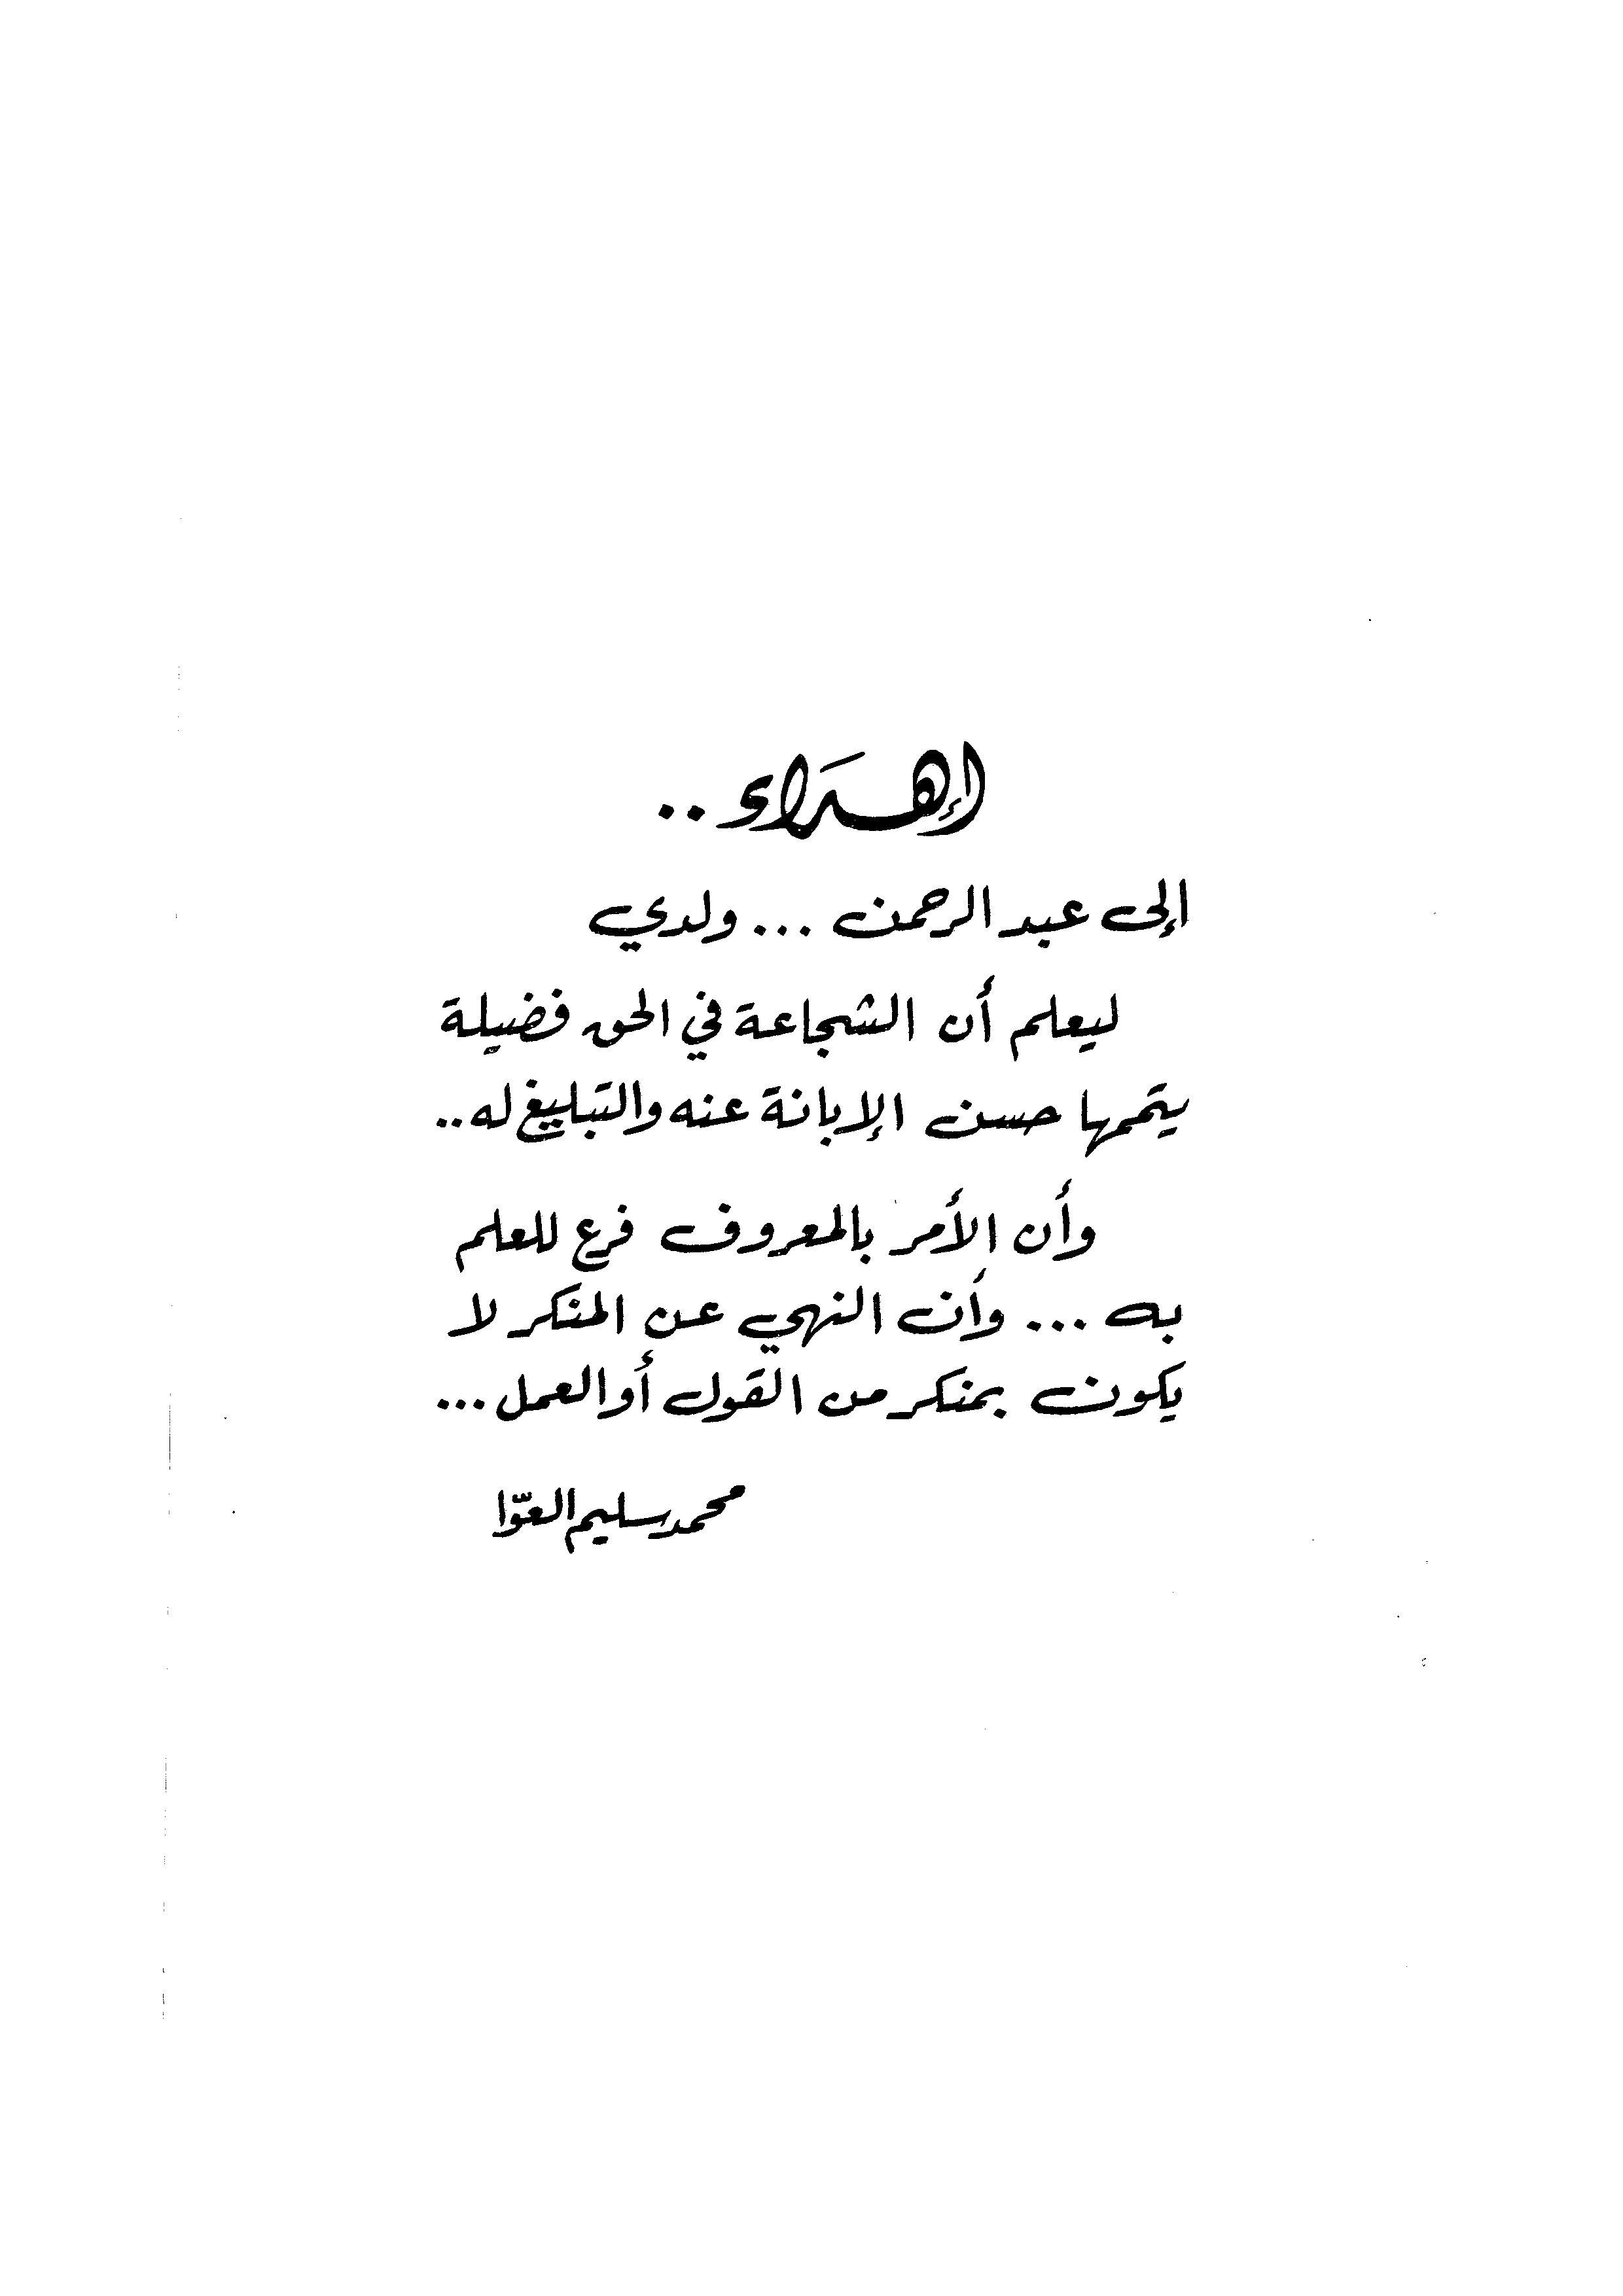 إهداء ..
إلى عبد الرحمن ... ولدي
ليعلم أن الشجاعة في الحق فضيلة
يتممها حسن الإبانة عنه والتبليغ له ..
وأن الأمر بالمعروف فرع للعلم
به ... وأن النهي عن المنكر لا
يكون بمنكر من القول أو العمل ...
محمد سليم العوّا